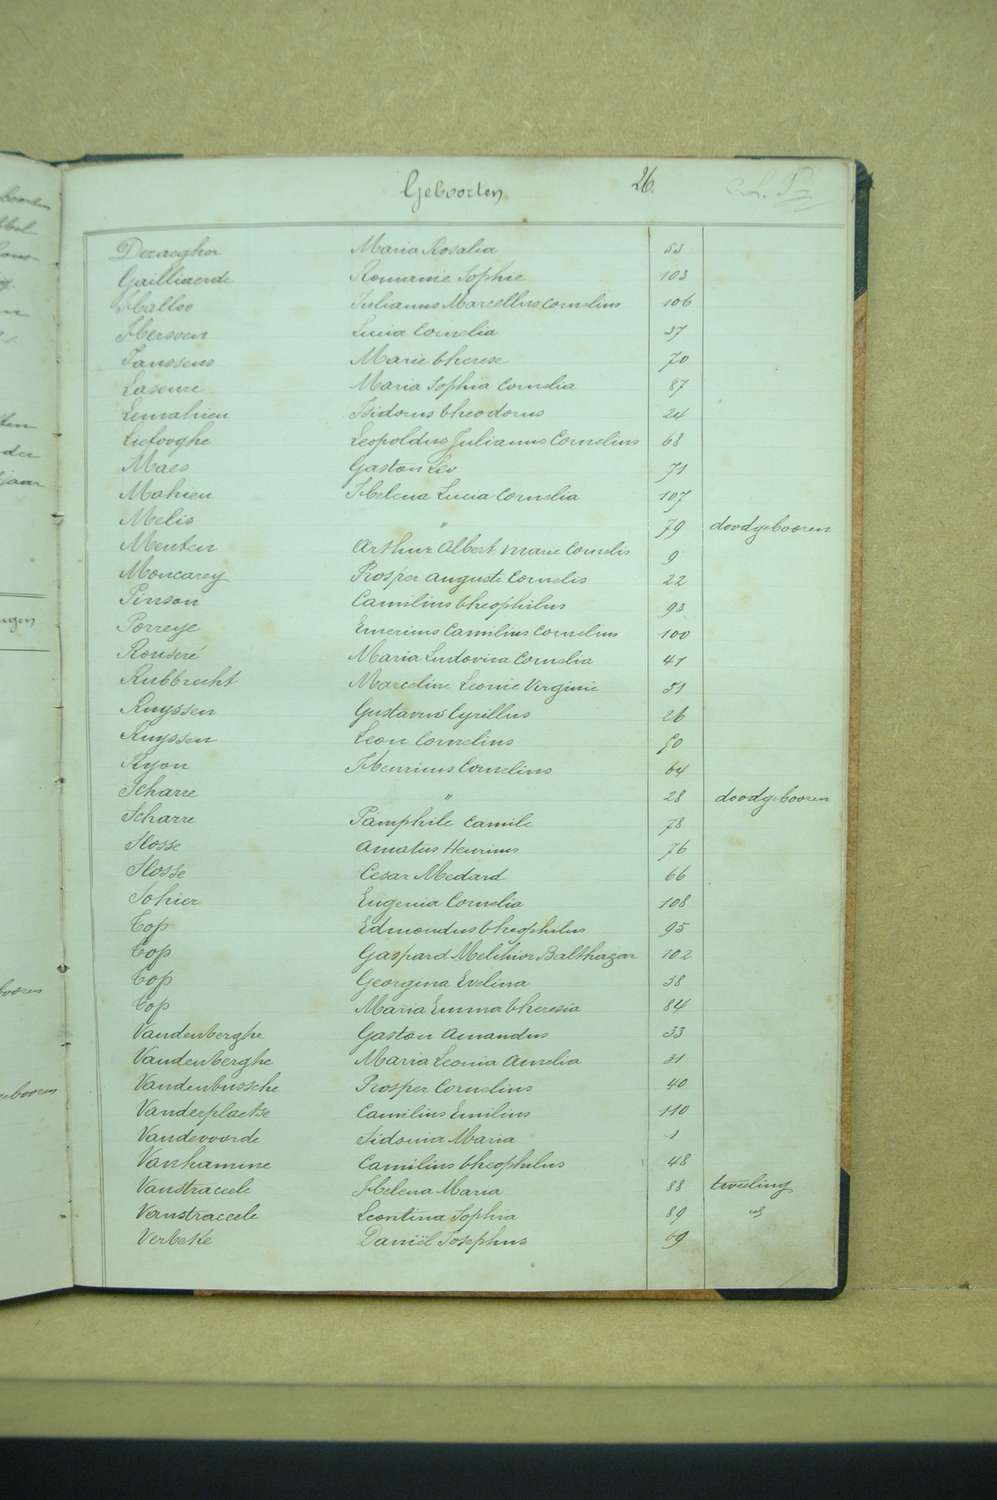 Geboorten 26.
Dezaegher Maria Rosalia 53
Gailliaerde Romanie Sophie 103
Halloo Julianus Marcellus Cornelius 106
Herssen Lucia Cornelia 37
Janssens Marie Therese 70
Laseure Maria Sophia Cornelia 87
Lemahieu Isidorus Theodorus 24
Liefooghe Leopoldus Julianus Cornelius 68
Maes Gaston Leo 71
Mahieu Helena Lucia Cornelia 107
Melis " 79 doodgebooren
Menten Arthur Albert Marie Cornelis 9
Moncarey Prosper Auguste Cornelis 22
Pinson Camilius Theophilus 93
Porreye Emerinus Camilius Cornelius 100
Rouseré Maria Ludovica Cornelia 41
Rubbrecht Marceline Leonie Virginie 51
Ruyssen Gustavus Cyrillus 26
Ruyssen Leon Cornelius 50
Ryon Henricus Cornelius 64
Scharre " 28 doodgebooren
Scharre Pamphile Camile 78
Slosse Amatus Henricus 76
Slosse Cesar Medard 66
Sohier Eugenia Cornelia 108
Top Edmondus Theophilus 95
Top Gaspard Melchior Balthazar 102
Top Georgina Evelina 58
Top Maria Emma Theresia 84
Vandenberghe Gaston Amandus 33
Vandenberghe Maria Leonia Amelia 31
Vandenbussche Prosper Cornelius 40
Vanderplaetse Camilius Emilius 110
Vandevoorde Sidonia Maria 1
Vanhamme Camilius Theophilus 48
Vanstraceele Helena Maria 88 tweeling
Vanstraceele Leontina Sophia 89 "
Verbeke Daniël Josephus 69